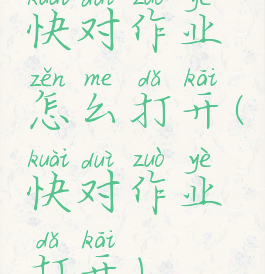 kuài duì zuò yè
快对作业
zěn me dǎ kāi
怎么打开(
kuài duì zuò yè
快对作业
dǎ kāi
打开)